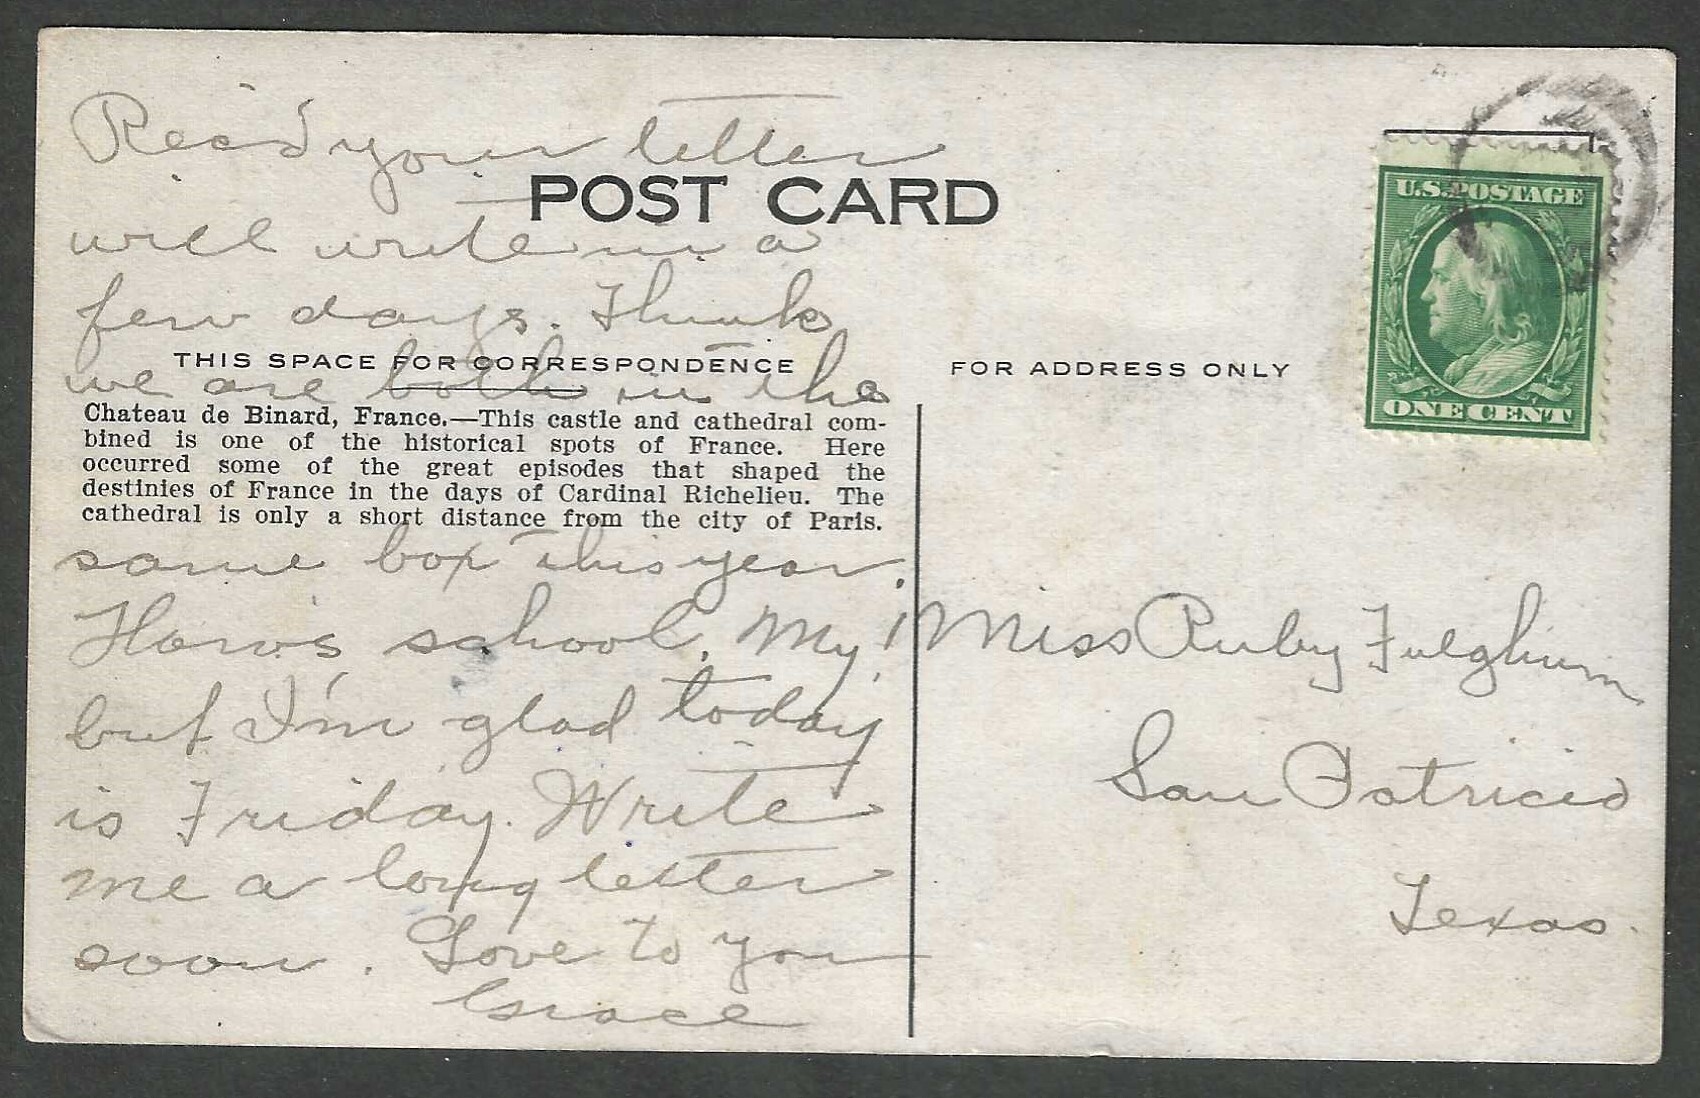 Rec'd your letter
POST CARD
will write in a
few days. Think
THIS SPACE FOR CORRESPONDENCE
we are both in the
Chateau de Binard, France.—This castle and cathedral com-
bined is one of the historical spots of France. Here
occurred some of the great episodes that shaped the
destinies of France in the days of Cardinal Richelieu. The
cathedral is only a short distance from the city of Paris.
same box this year.
How's school. My!
but I'm glad today
is Friday. Write
me a long letter
soon. Love to you
Grace
U.S. POSTAGE
ONE CENT
FOR ADDRESS ONLY
Miss Ruby Fulghum
San Patricio
Texas.